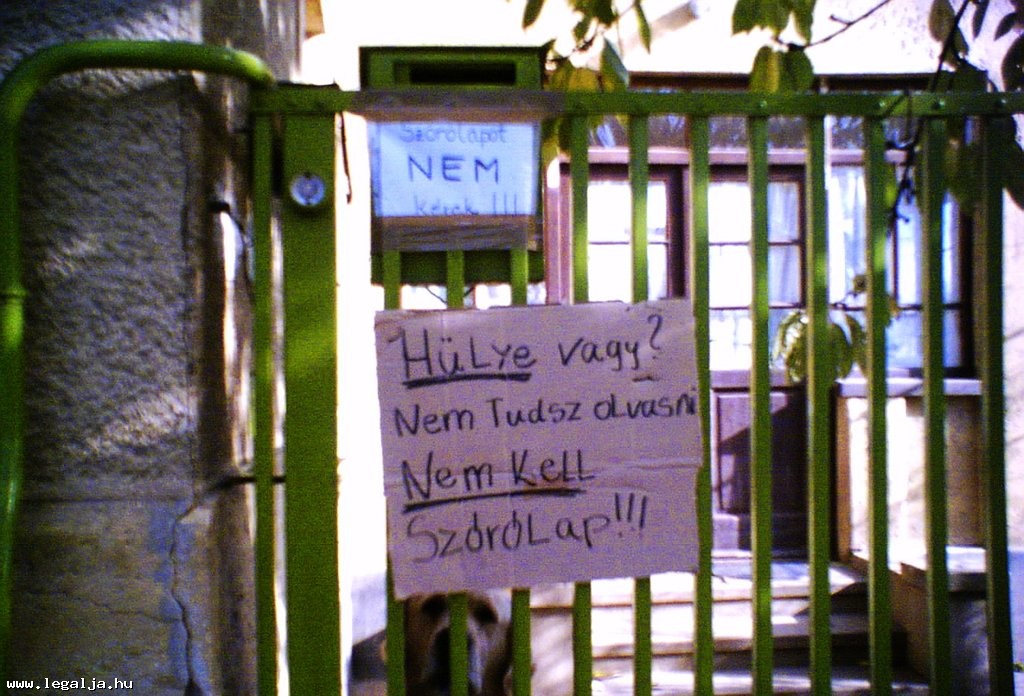 Szórólapot
NEM
kérek !!!
HÜLye vagy?
Nem Tudsz olvasni
Nem Kell
SzóróLap!!!
www.legalja.hu